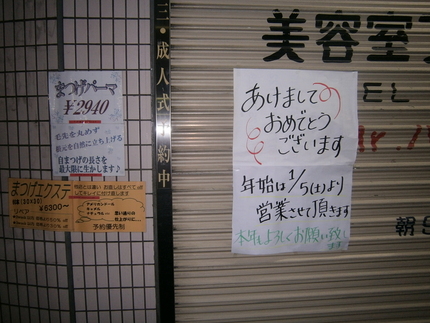 三・成人式
約中
まつげパーマ
¥2940
毛先を丸めず
根元を自然に立ち上げる
自まつげの長さを
最大限に生かします♪
まつげエクステ
¥6300~
リペア
ナチュラル
予約優先制
美容室
EL
あけまして
おめでとう
ございます
年始は1/5(土)より
営業させて頂きます
本年もよろしくお願い致し
ます
朝